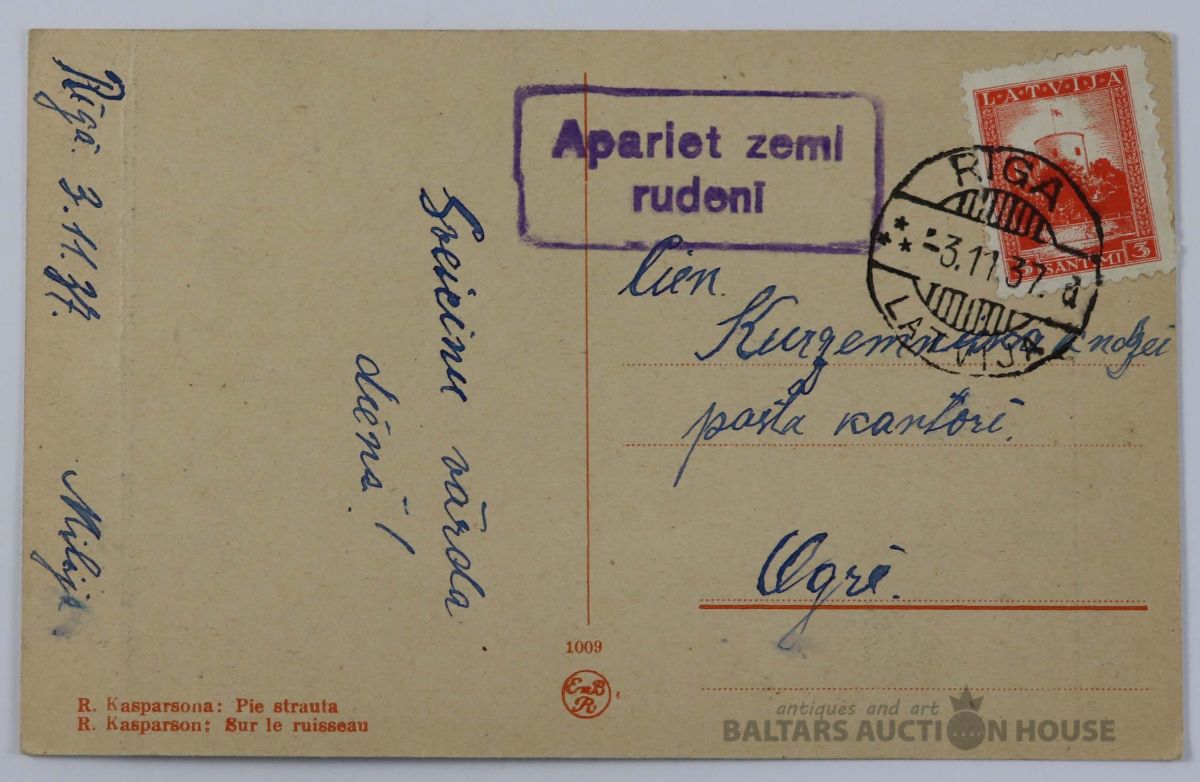 Rīgā 3.11.37.
Sveicinu vārda
dienā!
Milija
R. Kasparsona: Pie strauta
R. Kasparson: Sur le ruisseau
1009
EmB
R
Apariet zemi
rudenī
LATVIJA
3 SANTIMI 3
RIGA
-3.11.37. a
LATVIJA
Cien.
pasta kantorī.
Ogrē.
antiques and art
BALTARS AUCTION HOUSE